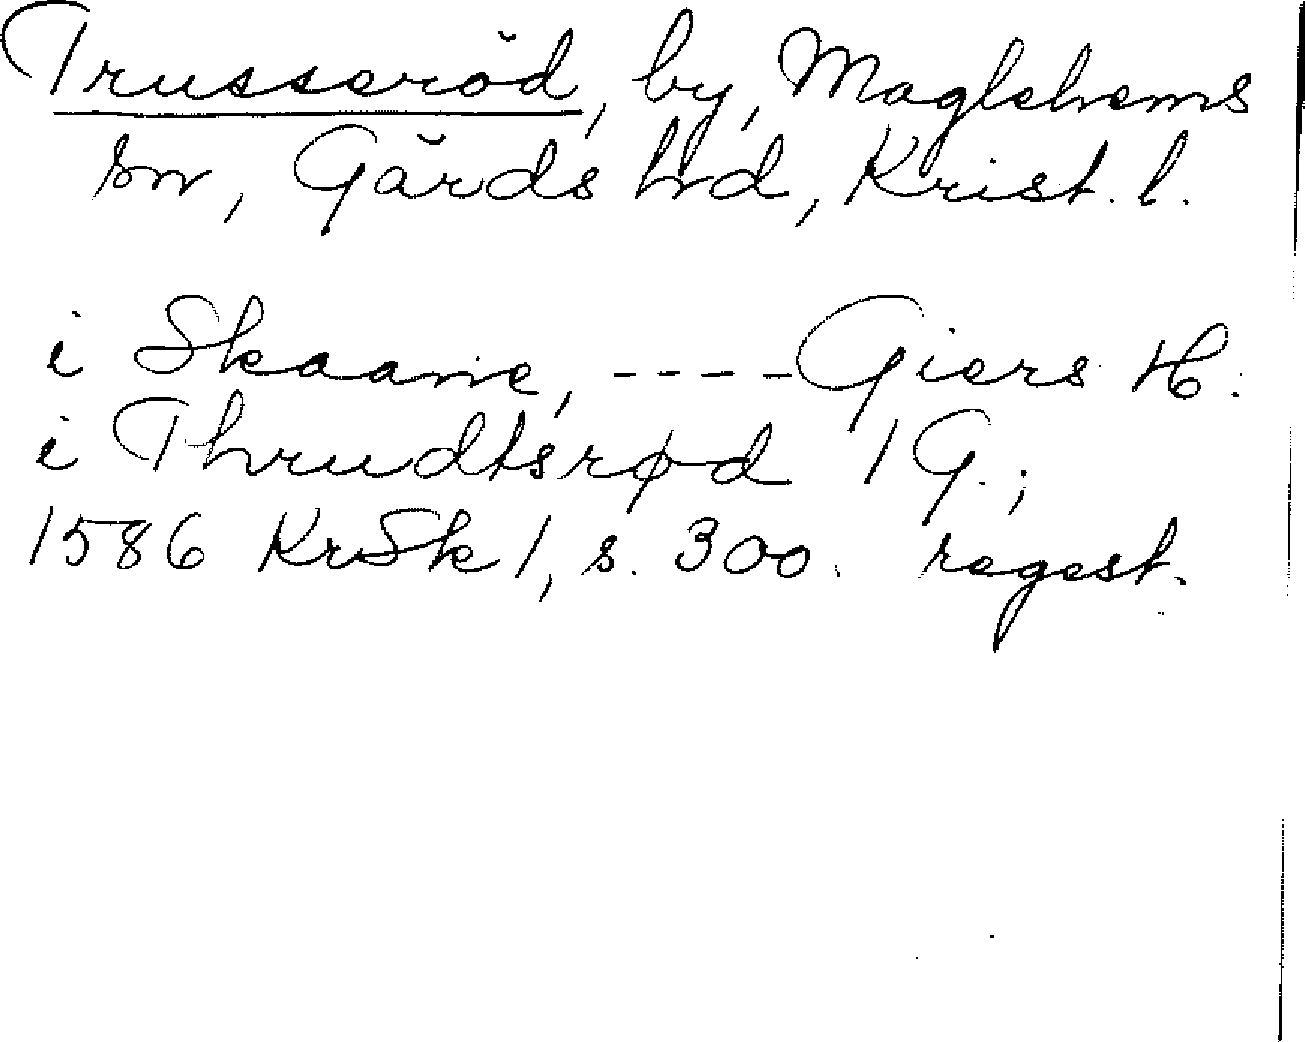 Trusseröd, by, Maglehems
sn, Gärds hd, Krist. l.
i Skaane, ---- Giers H.
i Thrudtsrød 1 G.;
1586 KrSk 1, s. 300. regest.